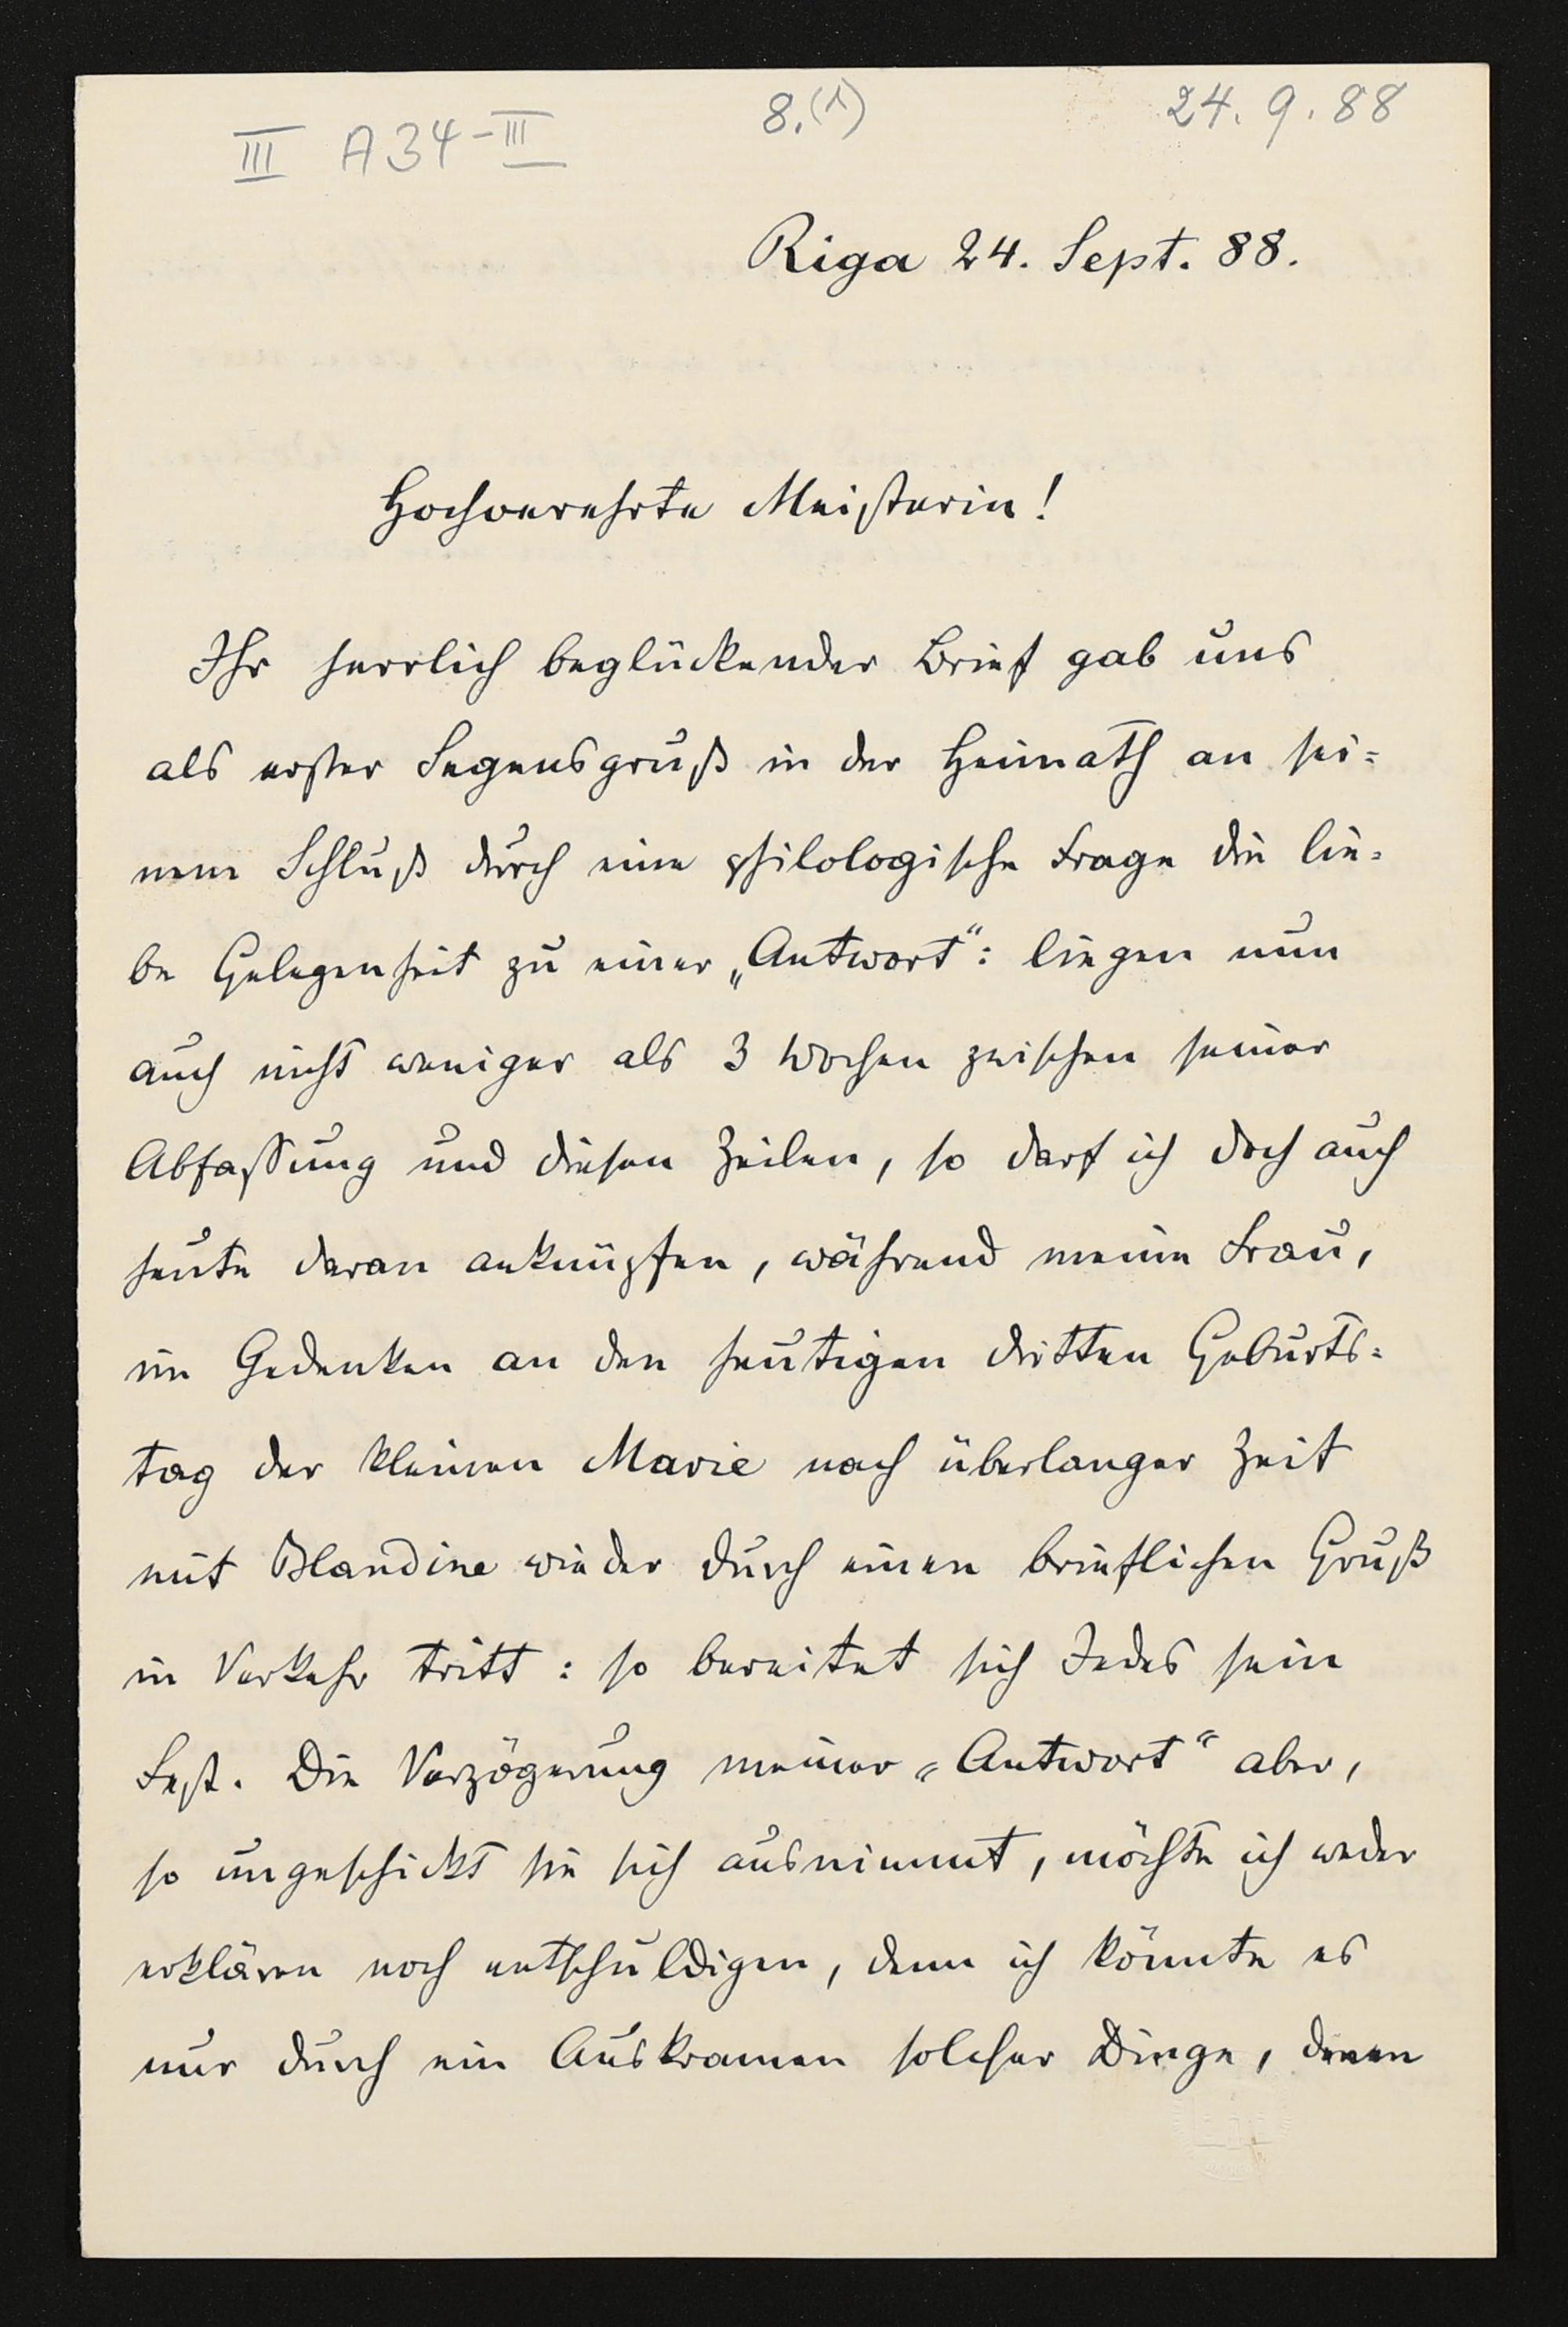 III A34-III
8.(1)
24.9.88
Riga 24. Sept. 88.
Hochverehrte Meisterin!
Ihr herrlich beglückender Brief gab uns
als erster Segensgruß in der Heimath an sei=
nem Schluß durch eine philologische Frage die lie=
be Gelegenheit zu einer „Antwort“: liegen nun
auch nicht weniger als 3 Wochen zwischen seiner
Abfassung und diesen Zeilen, so darf ich doch auch
heute daran anknüpfen, während meine Frau,
im Gedenken an den heutigen dritten Geburts=
tag der kleinen Marie nach überlanger Zeit
mit Blandine wieder durch einen brieflichen Gruß
in Verkehr tritt: so bereitet sich Jedes sein
Fest. Die Verzögerung meiner „Antwort“ aber,
so ungeschickt sie sich ausnimmt, möchte ich weder
erklären noch entschuldigen, denn ich könnte es
nur durch ein Auskramen solcher Dinge, denen